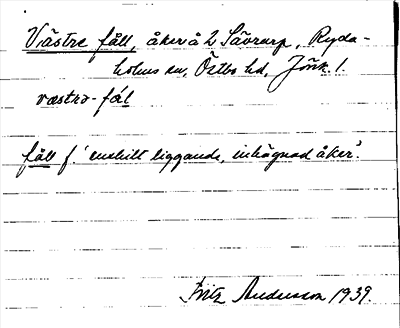 Västre fåll, åker å 2 Sävrarp, Ryda-
holms sn, Östbo hd, Jönk. l.
væstrə-fål
fåll f. 'enskilt liggande, inhägnad åker'.
Fritz Andersson 1939.